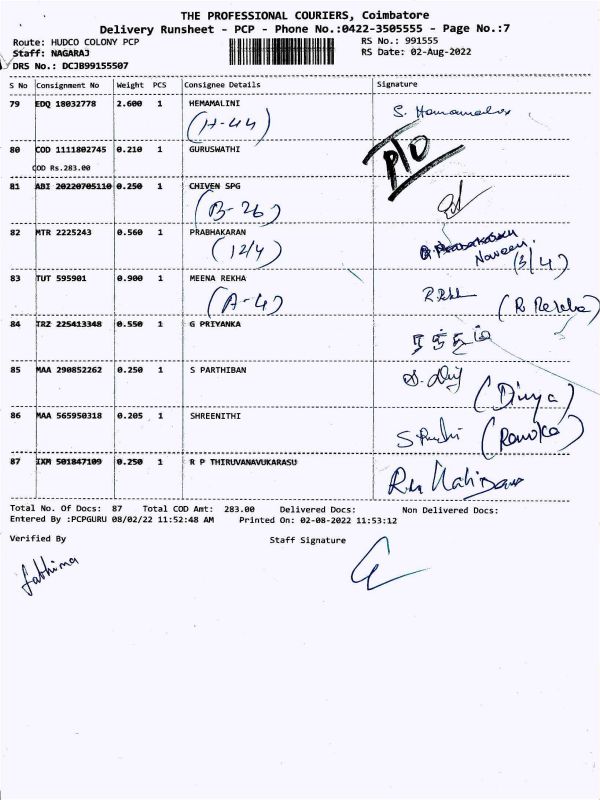 THE PROFESSIONAL COURIERS, Coimbatore
Delivery Runsheet - PCP - Phone No.:0422-3505555 - Page No.:7
Route: HUDCO COLONY PCP RS No.: 991555
Staff: NAGARAJ RS Date: 02-Aug-2022
DRS No.: DCJB99155507
S No Consignment No Weight PCS Consignee Details Signature
79 EDQ 18032778 2.600 1 HEMAMALINI
(H-44)
80 COD 1111802745 0.210 1 GURUSWATHI
COD Rs.283.00
81 ABI 20220705110 0.250 1 CHIVEN SPG
(B-26)
82 MTR 2225243 0.560 1 PRABHAKARAN
(12/4) Naveen
(3/4)
83 TUT 595901 0.900 1 MEENA REKHA
(A-4) (R Rekha)
84 TRZ 225413348 0.550 1 G PRIYANKA
85 MAA 290852262 0.250 1 S PARTHIBAN
(Divya)
86 MAA 565950318 0.205 1 SHREENITHI
87 IXM 501847109 0.250 1 R P THIRUVANAVUKARASU
Total No. Of Docs: 87 Total COD Amt: 283.00 Delivered Docs: Non Delivered Docs:
Entered By :PCPGURU 08/02/22 11:52:48 AM Printed On: 02-08-2022 11:53:12
Verified By Staff Signature